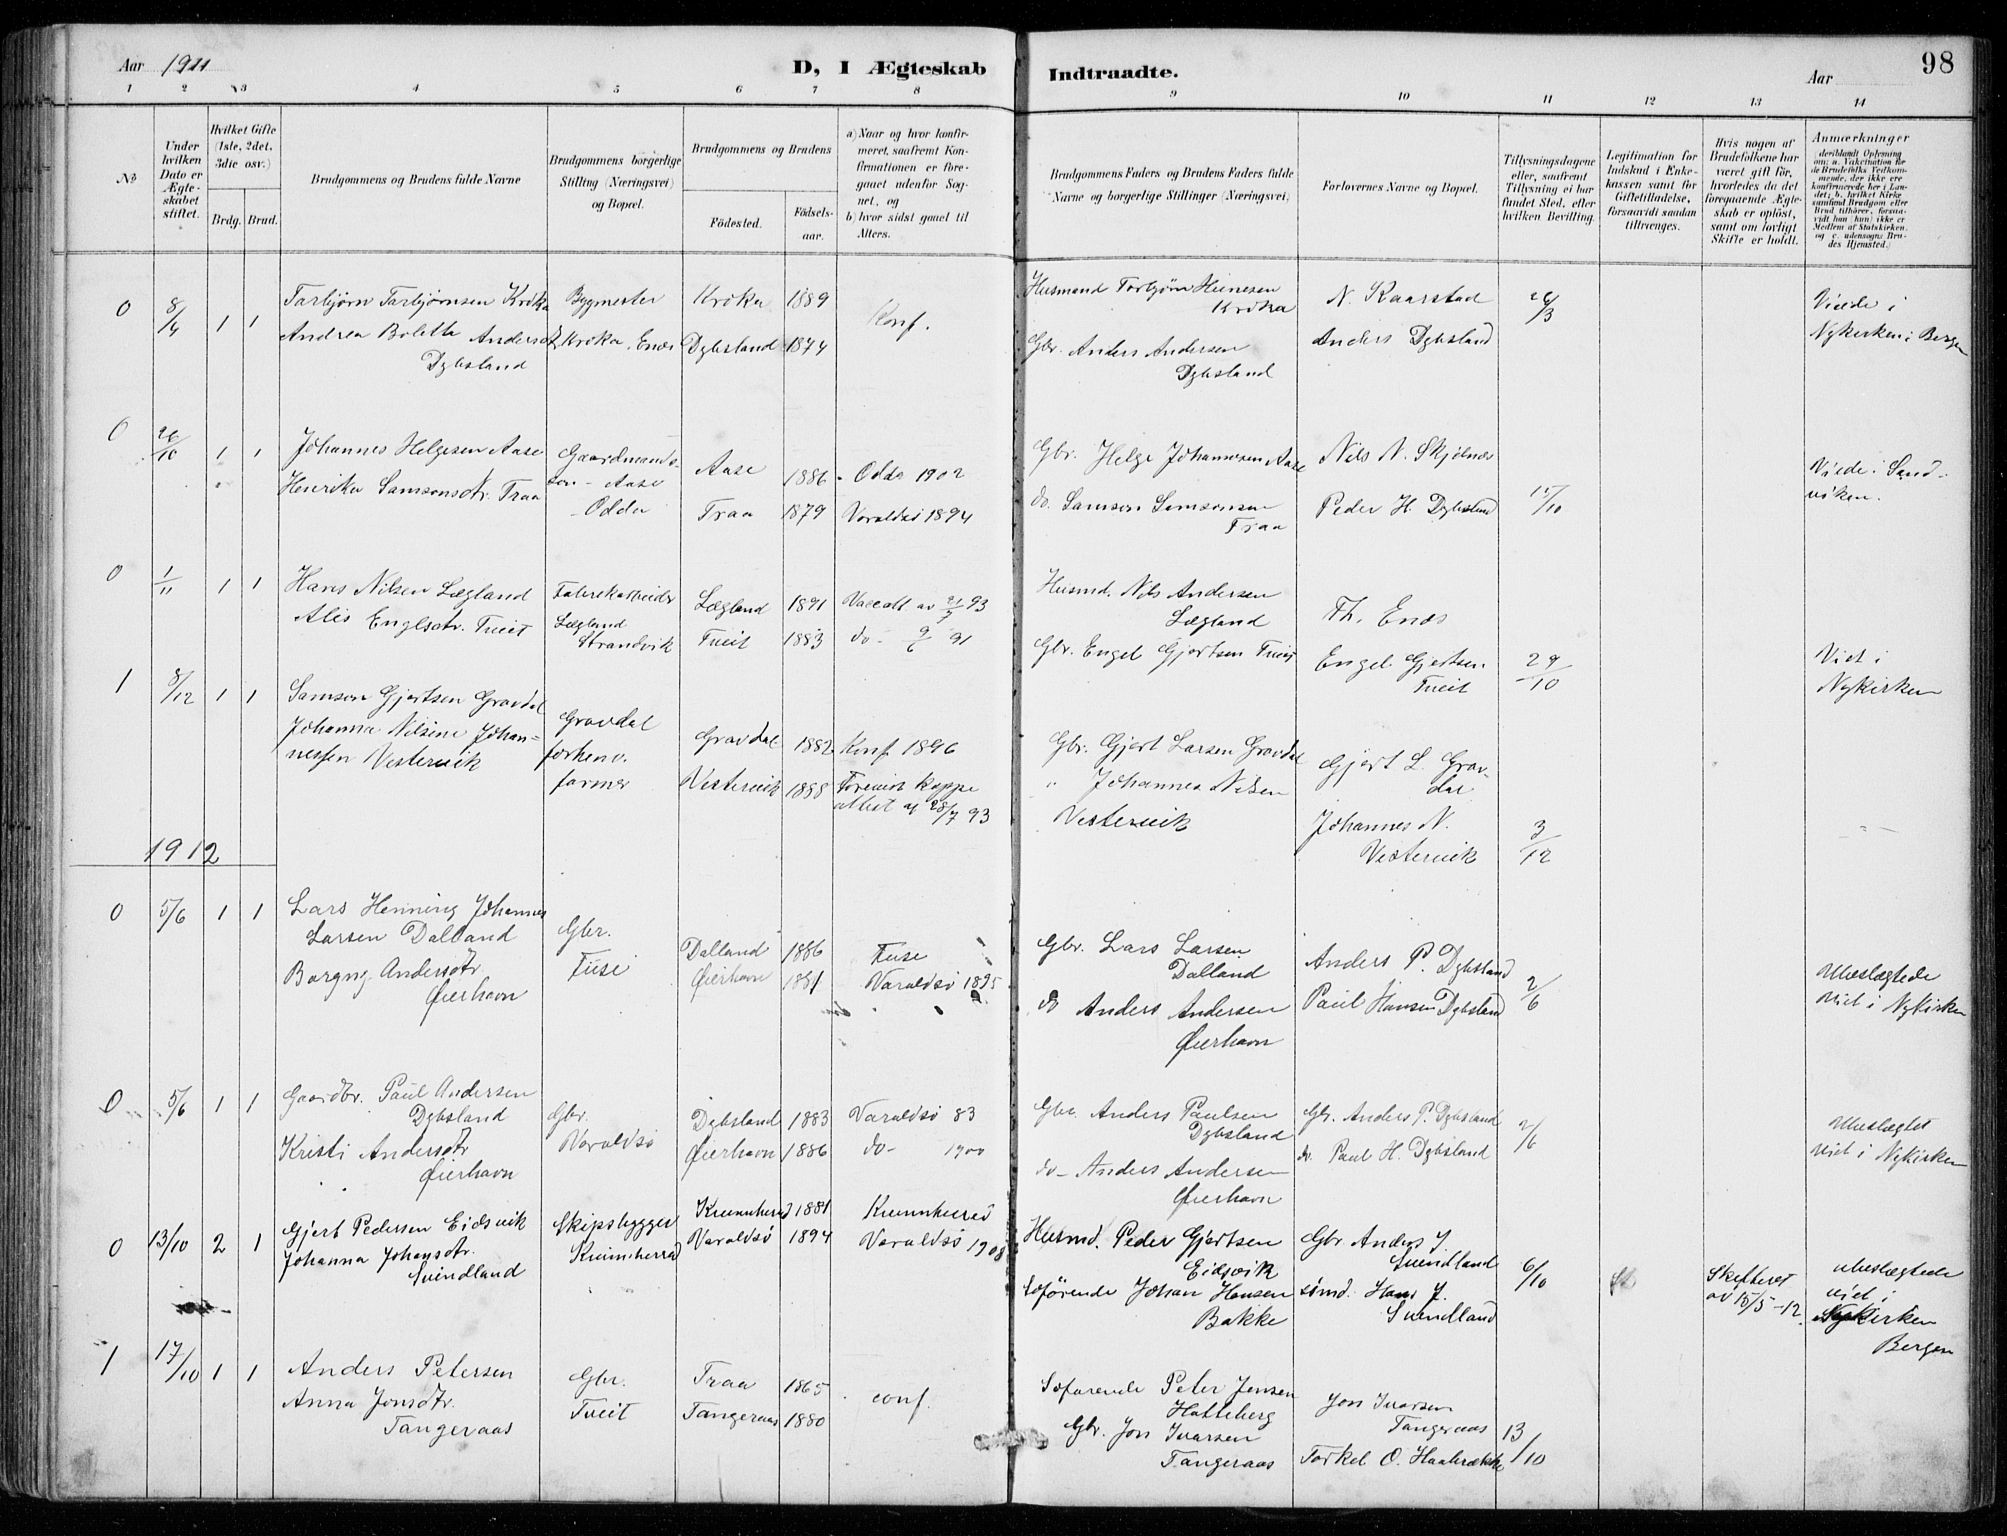 Aar 1911
D, I Ægteskab Indtraadte.
Aar
98
1 2 3 4 5 6 7 8 9 10 11 12 13 14
No
Under hvilken Dato er Ægteskabet stiftet.
Hvilket Gifte (1ste, 2det, 3die osv.)
Brdg. Brud.
Brudgommens og Brudens fulde Navne
Brudgommens borgerlige Stilling (Næringsvei) og Bopæl.
Brudgommens og Brudens
Fødested.
Fødsels-aar.
a) Naar og hvor konfirmeret, saafremt Konfirmationen er foregaaet udenfor Sognet, og
b) hvor sidst gaaet til Alters.
Brudgommens Faders og Brudens Faders fulde Navne og borgerlige Stillinger (Næringsvei)
Forlovernes Navne og Bopæl.
Tillysningsdagene eller, saafremt Tillysning ei har fundet Sted, efter hvilken Bevilling.
Legitimation for Indskud i Enkekassen samt for Giftetilladelse, forsaavidt saadan tiltrænges.
Hvis nogen af Brudefolkene har været gift før, hvorledes da det foregaaende Ægteskab er opløst, samt om lovligt Skifte er holdt.
Anmærkninger
(deriblandt Oplysning om: a. Vakcination for de Brudefolks Vedkommende, der ikke ere konfirmerede her i Landet; b. hvilket Kirkesamfund Brudgom eller Brud tilhører, forsaavidt han (hun) ikke er Medlem af Statskirken, og c. udensogns Brudes Hjemsted.)
0 8/4 1 1
Torbjørn Torbjørnsen Kroka
Andrea Bolette Andersdt.
Dybsland
Bygmester
Kroka, Enæs
Kroka 1889
Dybsland 1874
Konf.
Husmand Torbjørn
Kroka
Gbr. Anders Andersen
Dybsland
N. Kaarstad
Anders Dybsland
26/3
Viede i
Nykirken i Bergen
0 26/10 1 1
Johannes Helgesen Aase
Henrika Samsonsdtr. Traa
Gaardmands-
søn - Aase
Odda
Aase 1886
Traa 1879
- Odda 1902
Varaldsø 1894
Gbr. Helge Johannesen Aase
do. Samson Samsonsen
Traa
Nils N. Skjelnæs
Peder H. Dybsland
15/10
Viede i Sand-
viken.
0 1/11 1 1
Hans Nilsen Lægland
Alis Englsdtr. Tveit
Fabrikarbeider
Lægland
Strandvik
Lægland 1891
Tveit 1883
Vacc att av 21/7 93
do - 9/6 91
Husmd. Nils Andersen
Lægland
Gbr. Engel Gjertsen Tveit
Th. Enæs
Engel Gjertsen
Tveit
29/10
Viet i
Nykirken
1 8/12 1 1
Samson Gjertsen Gravdal
Johanna Nilsine Johan-
nessen Vestervik
Gravdal
forhenv.
farmer
Gravdal 1882
Vestervik 1888
Konf 1896
Foreviist koppe
attest af 28/7 93
Gbr. Gjert Larsen Gravdal
" Johannes Nilsen
Vestervik
Gjert L. Grav-
dal
Johannes N.
Vestervik
3/12
1912
0 5/6 1 1
Lars Henning Johannes
Larsen Dalland
Borgny Andersdtr.
Øierhavn
Gbr.
Fuse
Dalland 1886
Øierhavn 1881
Fuse
Varaldsø 1895
Gbr. Lars Larsen
Dalland
do Anders Andersen
Øierhavn
Anders P. Dybsland
Paul Hansen Dybsland
2/6
Ubeslægtede
viet i Nykirken
0 5/6 1 1
Gaardbr. Paul Andersen
Dybsland
Kristi Andersdtr.
Øierhavn
Gbr.
Varaldsø
Dybsland 1883
Øierhavn 1886
Varaldsø 83
do - 1900
Gbr Anders Paulsen
Dybsland
do - Anders Andersen
Øierhavn
Gbr. Anders P. Dybsland
do. Paul H. Dybsland
2/6
Ubeslægtet
viet i Nykirken
0 13/10 2 1
Gjert Pedersen Eidsvik
Johanna Johansdtr.
Svindland
Skipsbygger
Kvinnherrad
Kvinnherad 1881
Varaldsø 1894
Kvinnherred
Varaldsø 1908
Husmd. Peder Gjertsen
Eidsvik
Søførende Johan Hansen
Bakke
Gbr. Anders J.
Svendland
sömd. Hans J.
Svendland
6/10
Skifteret
av 15/5-12.
ubeslægtede
viet i
Nykirken
Bergen
1 17/10 1 1
Anders Petersen
Anna Jonsdtr.
Tangeraas
Gbr.
Tveit
Traa 1865
Tangeraas 1880
conf.
Søfarende Peter Jensen
Hatteberg
Gbr. Jon Ivarsen
Tangeraas
Jon Ivarsen
Tangeraas
Torkel O.
13/10